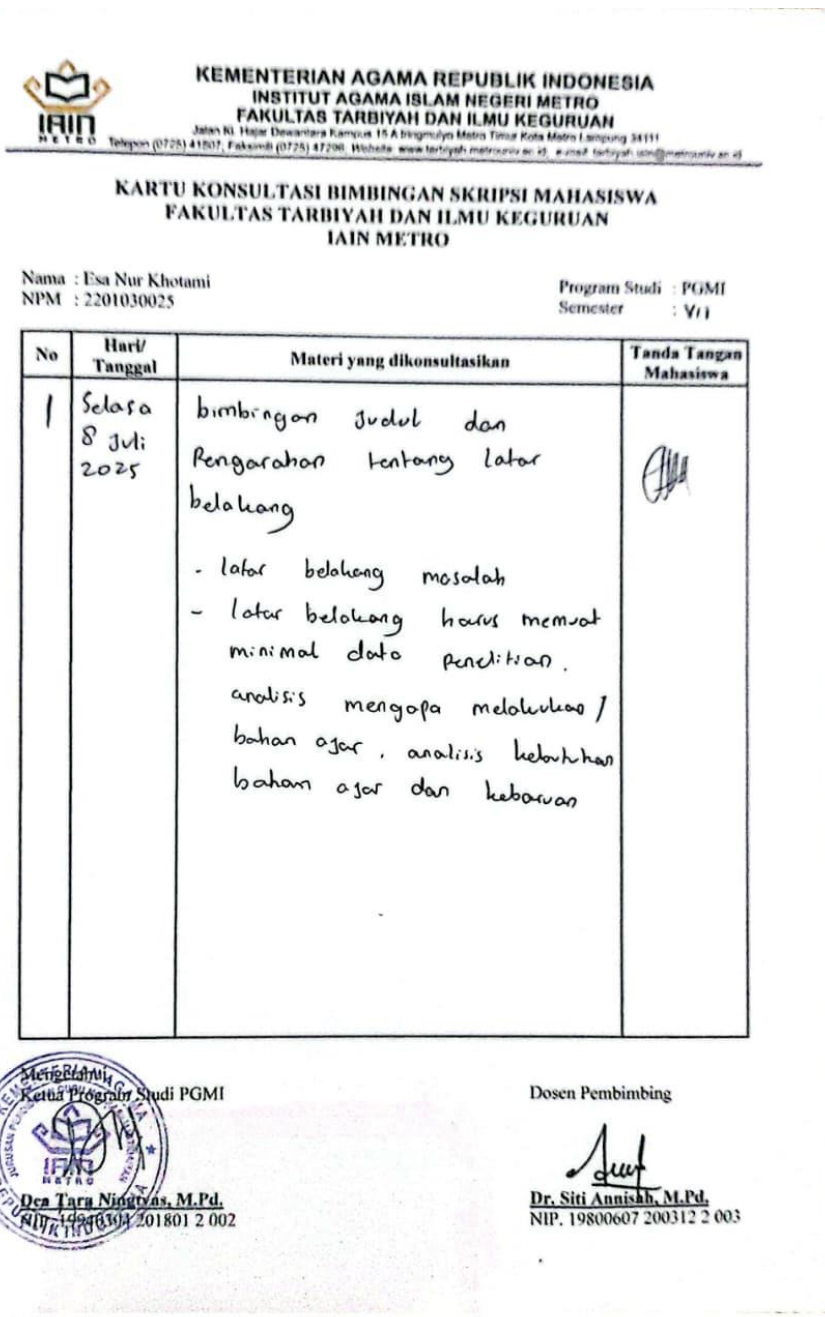 IAIN
METRO
KEMENTERIAN AGAMA REPUBLIK INDONESIA
INSTITUT AGAMA ISLAM NEGERI METRO
FAKULTAS TARBIYAH DAN ILMU KEGURUAN
Jalan Ki. Hajar Dewantara Kampus 15 A Iringmulyo Metro Timur Kota Metro Lampung 34111
Telepon (0725) 41507, Faksimili (0725) 47296, Website: www.tarbiyah.metrouniv.ac.id, e-mail: tarbiyah.iain@metrouniv.ac.id
KARTU KONSULTASI BIMBINGAN SKRIPSI MAHASISWA
FAKULTAS TARBIYAH DAN ILMU KEGURUAN
IAIN METRO
Nama : Esa Nur Khotami
NPM : 2201030025
Program Studi : PGMI
Semester : VII
No
Hari/
Tanggal
Materi yang dikonsultasikan
Tanda Tangan
Mahasiswa
1
Selasa
8 Juli
2025
bimbingan Judul dan
Pengarahan tentang latar
belakang
- latar belakang masalah
- latar belakang harus memuat
minimal data penelitian.
analisis mengapa melakukan /
bahan ajar, analisis kebutuhan
bahan ajar dan kebaruan
Mengetahui,
Ketua Program Studi PGMI
IAIN
METRO
Dea Tara Ningtyas, M.Pd.
NIP. 19940304 201801 2 002
Dosen Pembimbing
Dr. Siti Annisah, M.Pd.
NIP. 19800607 200312 2 003